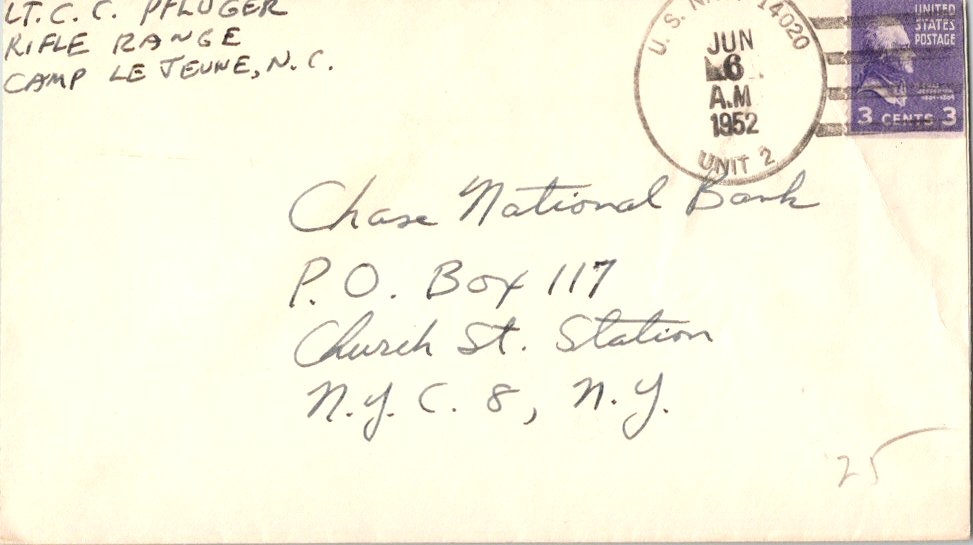 LT. C. C. PFLUGER
RIFLE RANGE
CAMP LE JEUNE, N.C.
U. S. N. 14020
JUN
6
A.M
1952
UNIT 2
UNITED
STATES
POSTAGE
3 CENTS 3
Chase National Bank
P.O. Box 117
Church St. Station
N.Y.C. 8, N.Y.
25